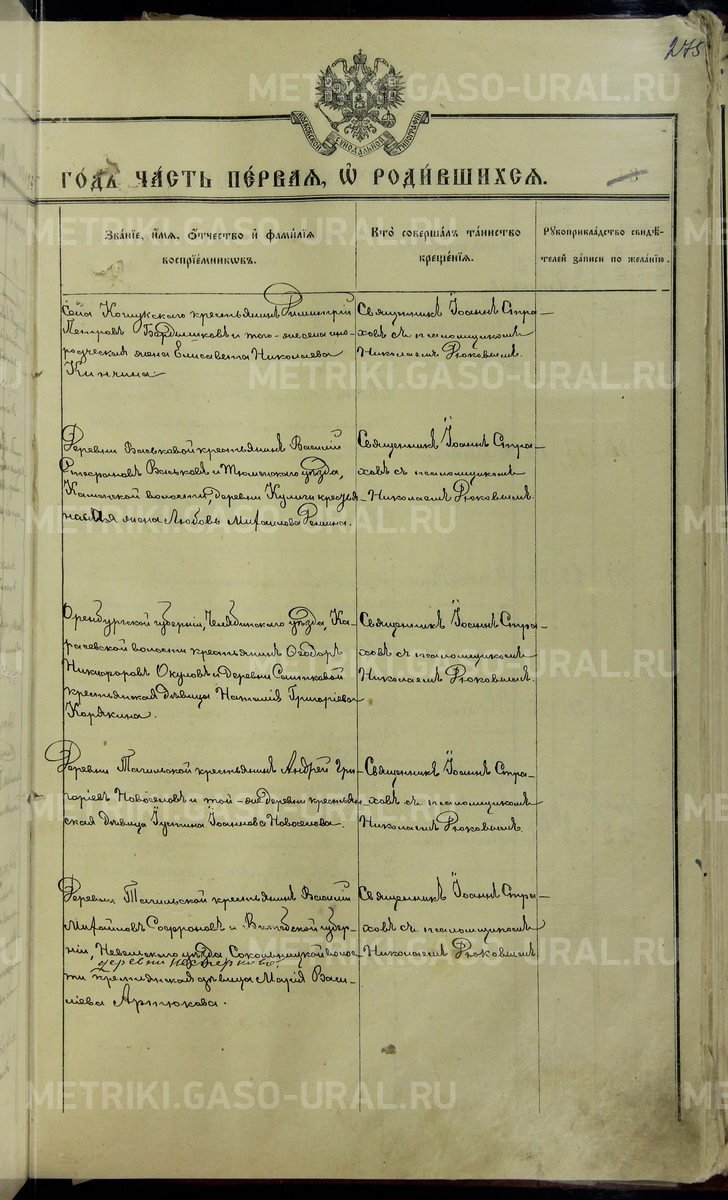 275
METRIKI.GASO-URAL.RU
МОСКОВСКОЙ СѴНОДАЛЬНОЙ ТИПОГРАФІИ
ГОДЪ ЧАСТЬ ПЕРВАЯ, Ѡ РОДИВШИХСЯ.
Званіе, имя, отчество и фамилія
воспріемниковъ.
Кто совершалъ таинство
крещенія.
Рукоприкладство свидѣ-
телей записи по желанію.
Села крестьянинъ Димитрій
Петровъ и того-же села ино-
родческая жена Елисавета Николаева
Кинчина
Священникъ Іоаннъ Стра-
ховъ съ псаломщикомъ
Николаемъ Рюковымъ.
Деревни Васьковой крестьянинъ Василій
Стефановъ Васьковъ и Тюменскаго уѣзда,
Каменской волости, деревни Кулиги крестьян-
ская жена Любовь Михаилова
Священникъ Іоаннъ Стра-
ховъ съ псаломщикомъ
Николаемъ Рюковымъ.
Оренбургской губерніи, Челябинскаго уѣзда, Ка-
рачевской волости крестьянинъ Ѳеодоръ
Никифоровъ Окуловъ и деревни
крестьянская дѣвица Наталія Григоріева
Корякина.
Священникъ Іоаннъ Стра-
ховъ съ псаломщикомъ
Николаемъ Рюковымъ.
Деревни Тагильской крестьянинъ Андрей Гри-
горіевъ Новоселовъ и той-же деревни крестьян-
ская дѣвица Іустина Іоаннова Новоселова.
Священникъ Іоаннъ Стра-
ховъ съ псаломщикомъ
Николаемъ Рюковымъ.
Деревни Тагильской крестьянинъ Василій
Михаиловъ Софроновъ и Витебской губер-
ніи, Невельскаго уѣзда Сокольницкой волос-
деревни
ти крестьянская дѣвица Марія Васи-
ліева Артюхова.
Священникъ Іоаннъ Стра-
ховъ съ псаломщикомъ
Николаемъ Рюковымъ